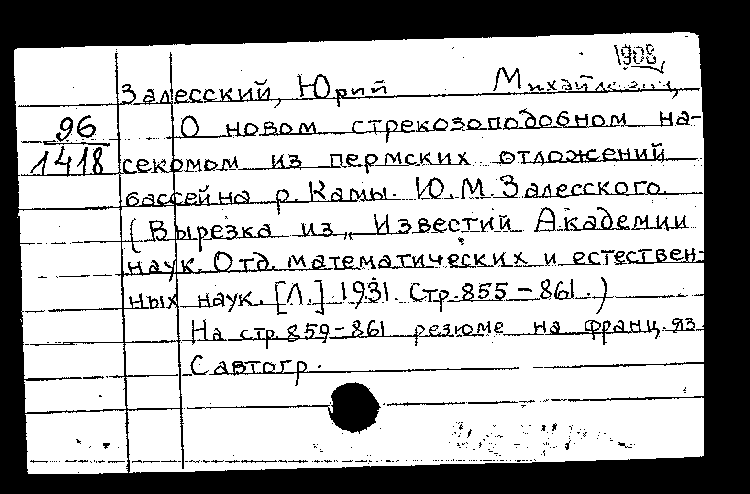 1908,
Залесский, Юрий Михайлович,
96
1418
О новом стрекозоподобном на-
секомом из пермских отложений
бассейна р. Камы. Ю. М. Залесского.
(Вырезка из „Известий Академии
наук. Отд. математических и естествен-
ных наук. [Л.] 1931. Стр. 855-861.)
На стр. 859-861 резюме на франц. яз.
С автогр.